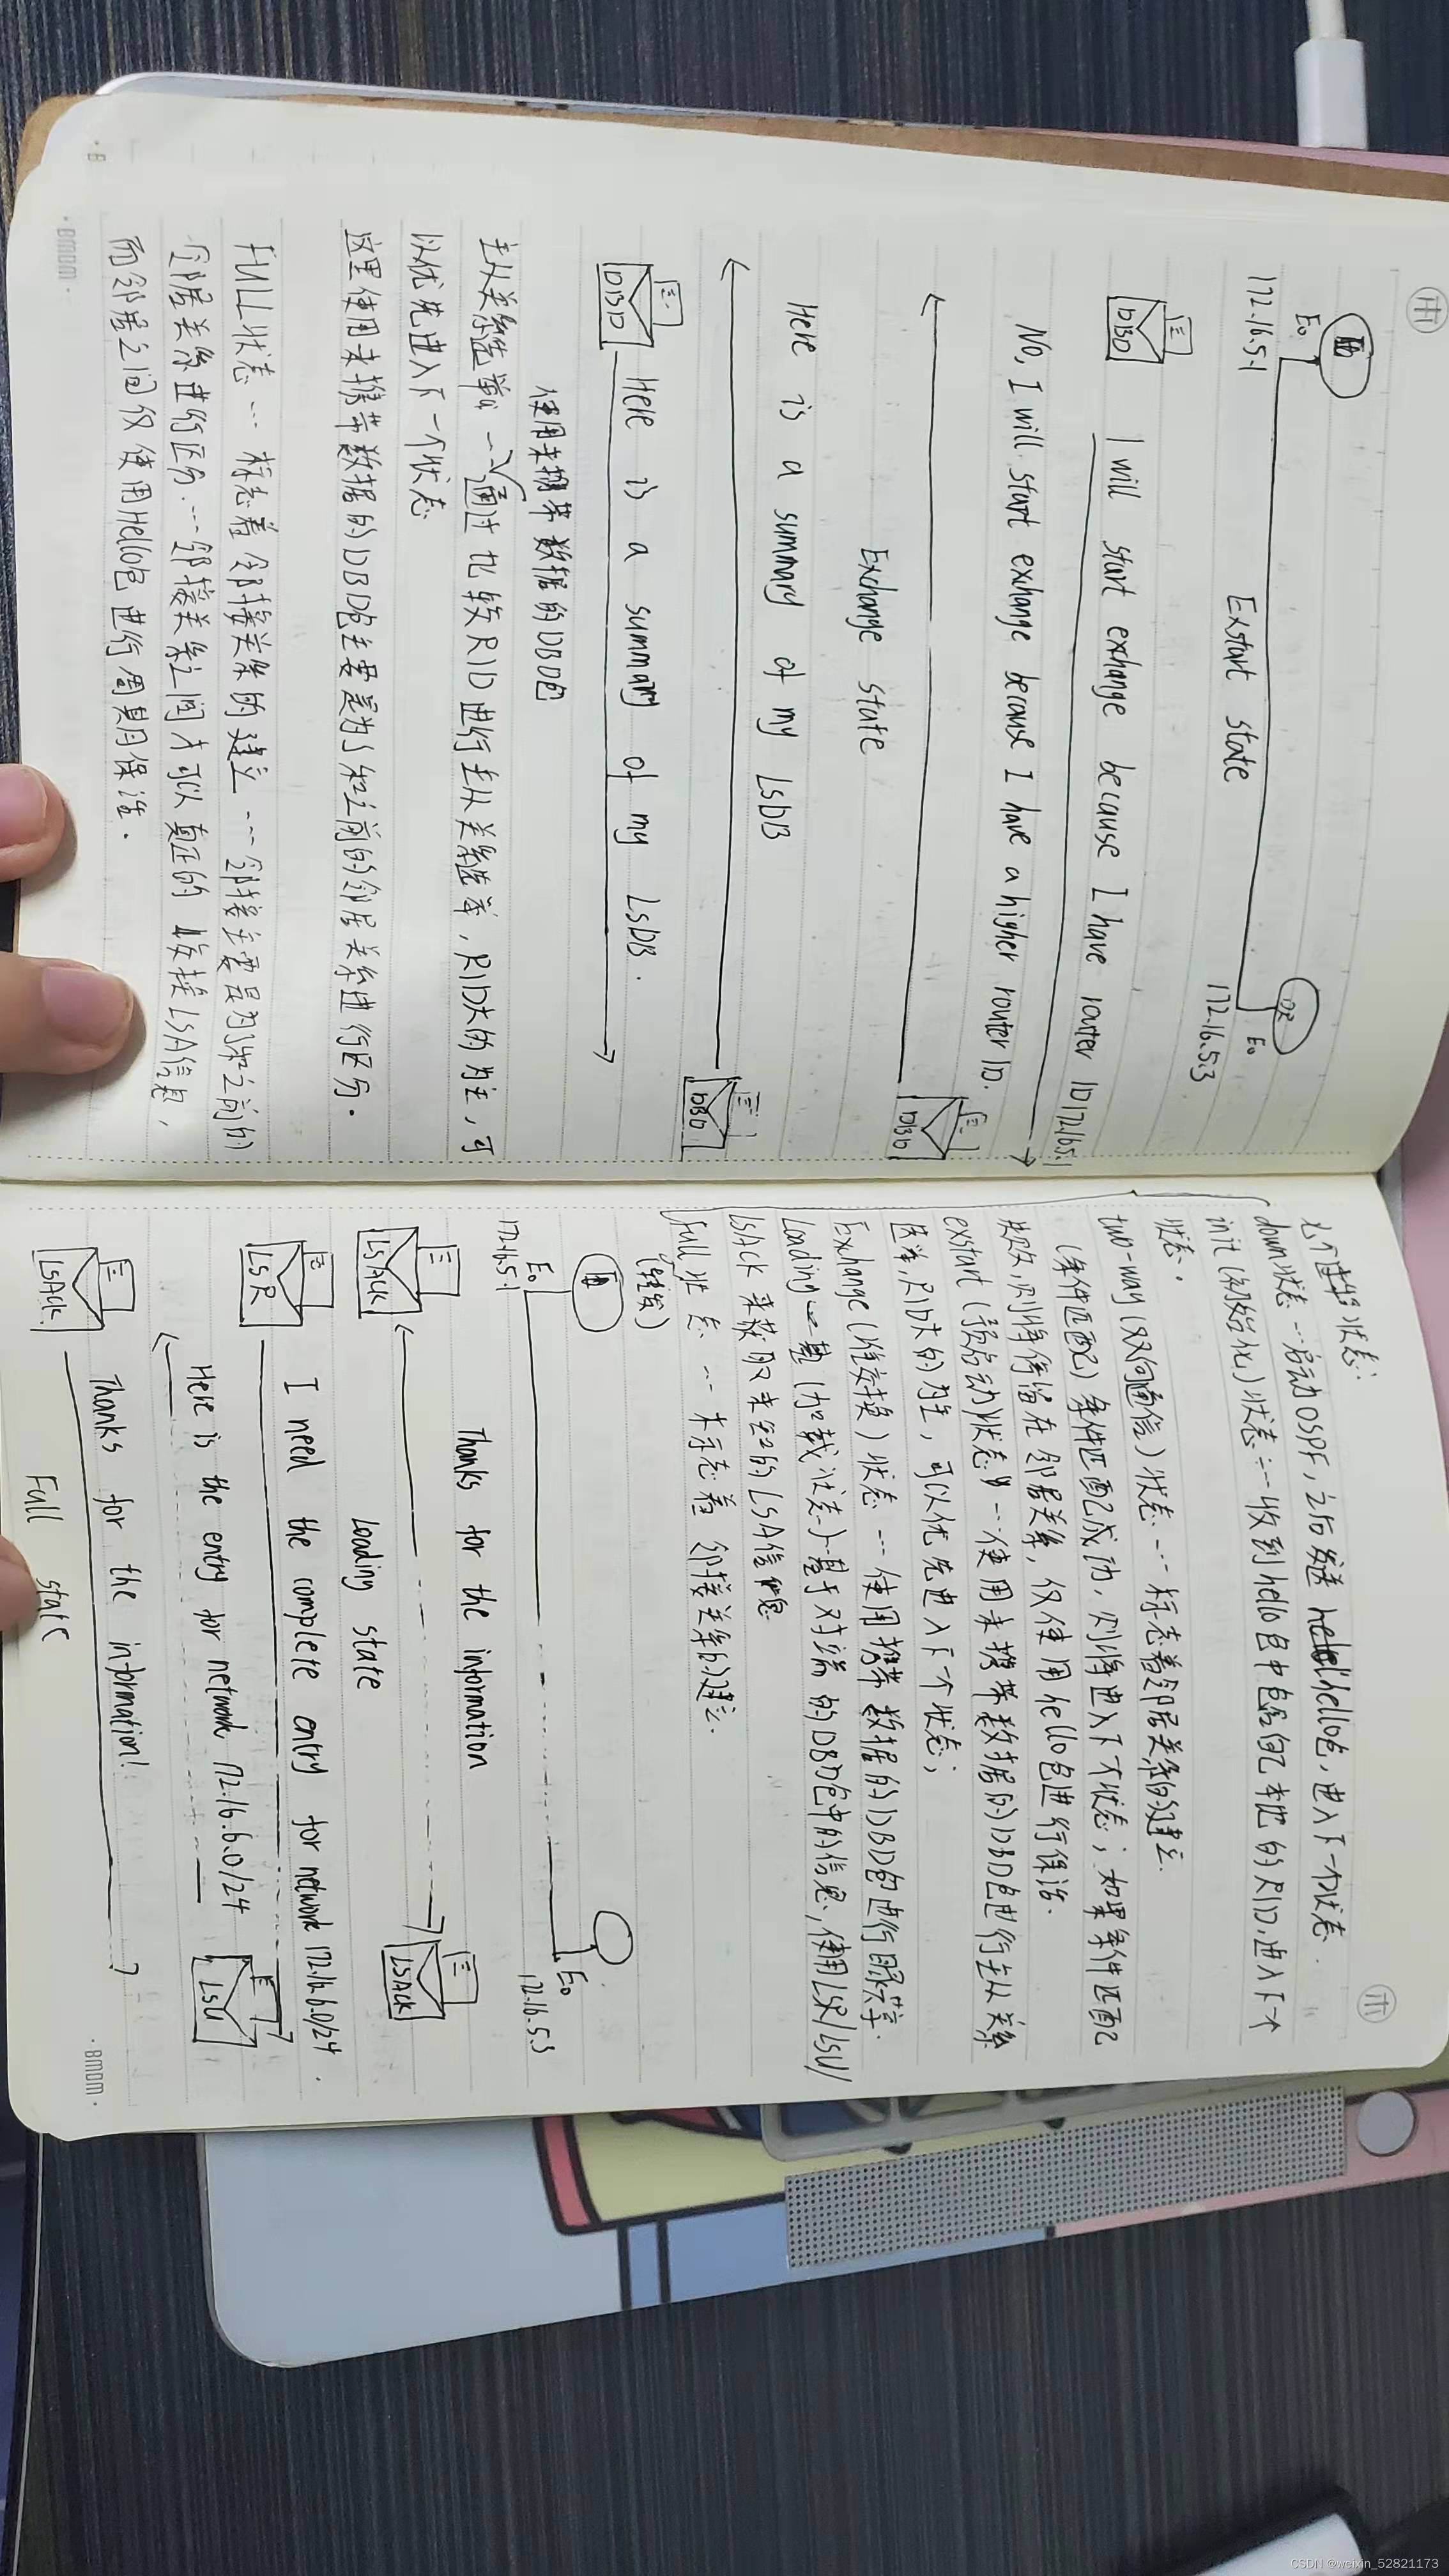 E0
172.16.5.1
DR
E0
172.16.5.3
Exstart state
DBD
I will start exchange because I have router ID 172.16.5.1
No, I will start exchange because I have a higher router ID.
DBD
Exchange state
Here is a summary of my LSDB
DBD
DBD
Here is a summary of my LSDB.
使用未携带数据的DBD包
主从关系选举 --- 通过比较RID进行主从关系选举,RID大的为主,可
以优先进入下一个状态
这里使用未携带数据的DBD包主要是为了和之前的邻居关系进行区分.
FULL状态 --- 标志着邻接关系的建立 --- 邻接主要是为了和之前的
邻居关系进行区分. --- 邻接关系之间才可以真正的收接LSA信息,
而邻居之间仅使用Hello包进行周期保活.
·BMDM·
七个 状态:
down状态 --- 启动OSPF,之后发送hello包,进入下一个状态.
init(初始化)状态 --- 收到hello包中包含自己本地的RID,进入下一个
状态.
two-way(双向通信)状态 --- 标志着邻居关系的建立.
(条件匹配)条件匹配成功,则将进入下一个状态;如果条件匹配
失败,则将停留在邻居关系,仅使用hello包进行保活.
exstart(预启动)状态 --- 使用未携带数据的DBD包进行主从关系
选举,RID大的为主,可以优先进入下一个状态;
Exchange(准交换)状态 --- 使用携带数据的DBD包进行 共享.
Loading(加载状态)基于对端的DBD包中的信息,使用LSR/LSU/
LSACK来获取未知的LSA信息
Full状态 --- 标志着邻接关系的建立.
(转发)
E0
172.16.5.1
E0
172.16.5.3
Thanks for the information
LSACK
LSACK
Loading state
LSR
I need the complete entry for network 172.16.6.0/24.
Here is the entry for network 172.16.6.0/24
LSU
LSACK
Thanks for the information!
Full state
·BMDM·
CSDN @weixin_52821173